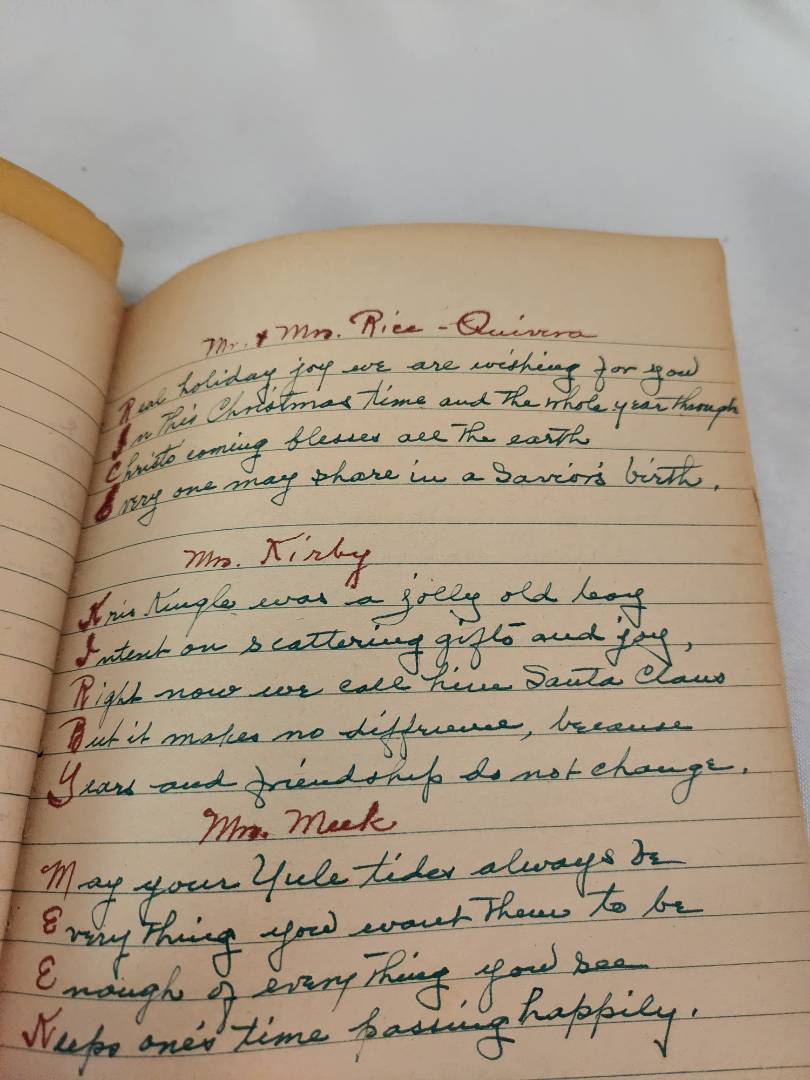 Mr. & Mrs. Rice - Quivera
Real holiday joy we are wishing for you
In this Christmas time and the whole year through
Christs coming blesses all the earth
Every one may share in a Savior's birth.
Mrs. Kirby
Kris Kingle was a jolly old boy
Intent on scattering gifts and joy,
Right now we call him Santa Claus
But it makes no difference, because
Years and friendship do not change.
Mrs. Meek
May your Yule tides always be
Every thing you want them to be
Enough of every thing you see
Keeps one's time passing happily.